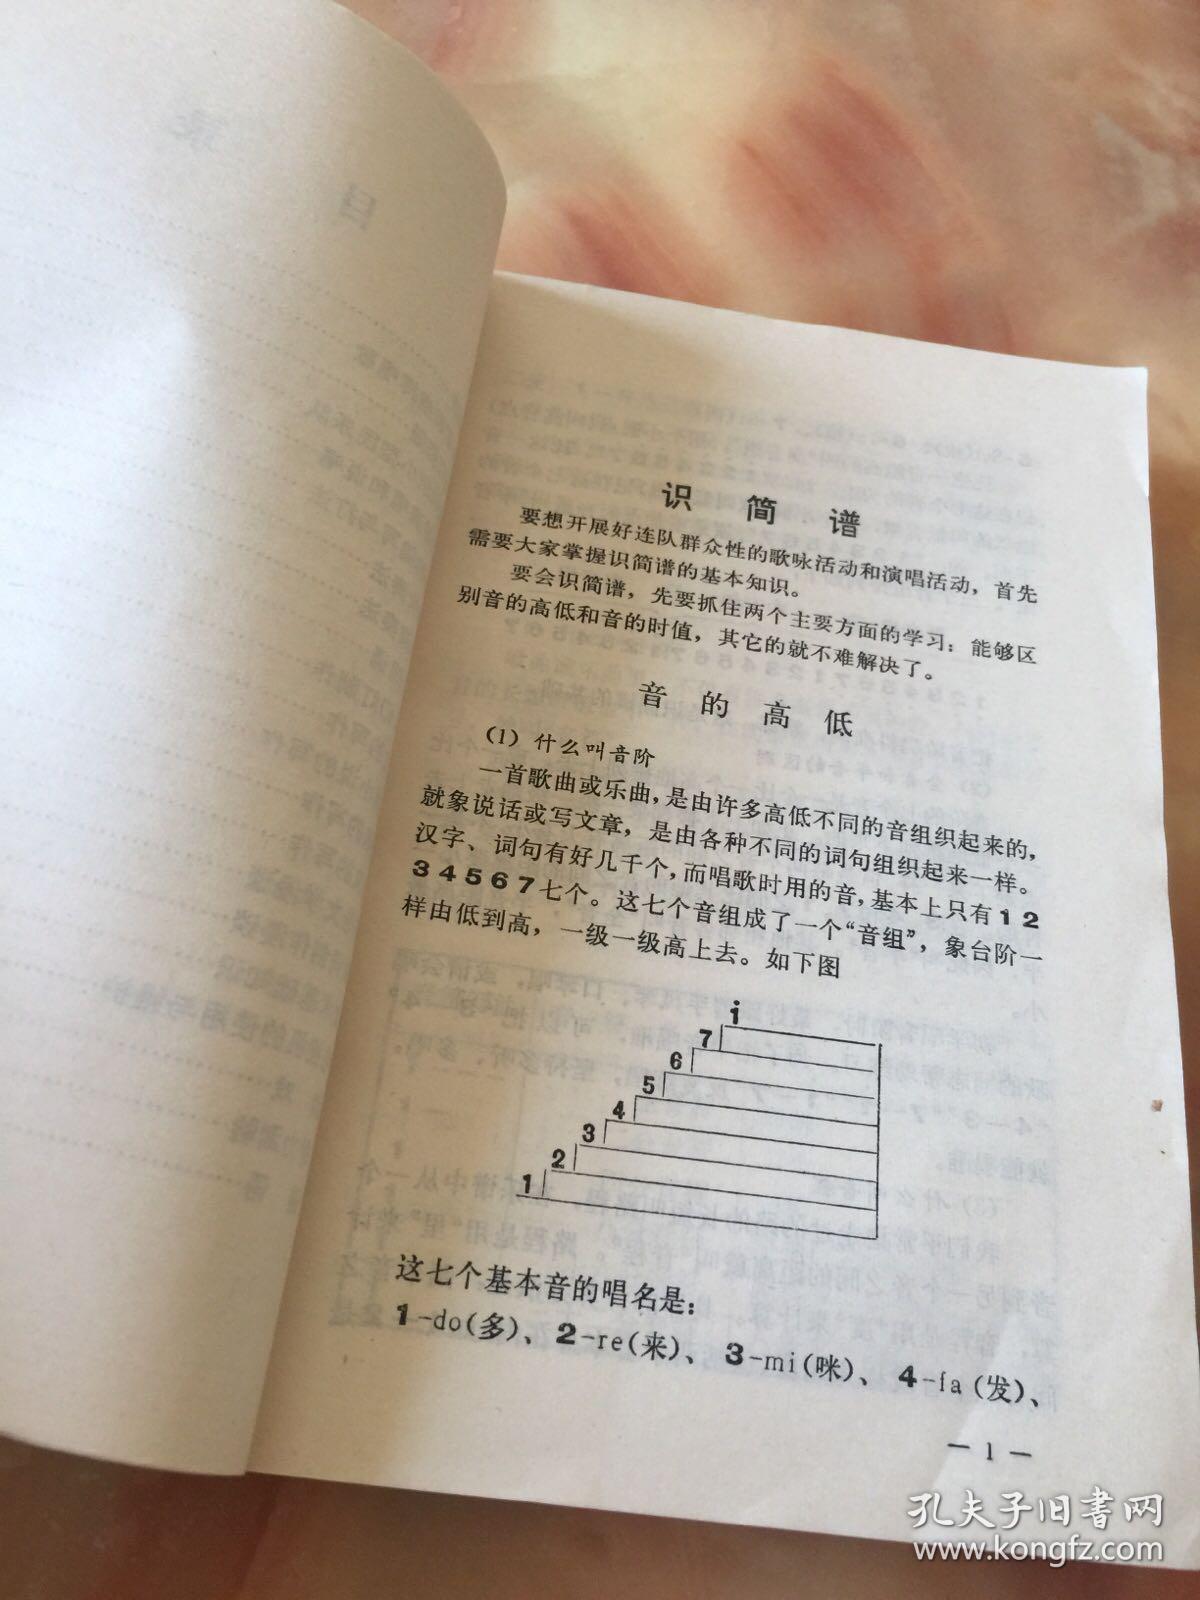 识简谱
要想开展好连队群众性的歌咏活动和演唱活动，首先
需要大家掌握识简谱的基本知识。
要会识简谱，先要抓住两个主要方面的学习：能够区
别音的高低和音的时值，其它的就不难解决了。
音的高低
（1）什么叫音阶
一首歌曲或乐曲，是由许多高低不同的音组织起来的，
就象说话或写文章，是由各种不同的词句组织起来一样。
汉字、词句有好几千个，而唱歌时用的音，基本上只有1 2
3 4 5 6 7七个。这七个音组成了一个“音组”，象台阶一
样由低到高，一级一级高上去。如下图
i
7
6
5
4
3
2
1
这七个基本音的唱名是：
1-do(多)、2-re(来)、3-mi(咪)、4-fa(发)、
— 1 —
孔夫子旧书网
www.kongfz.com